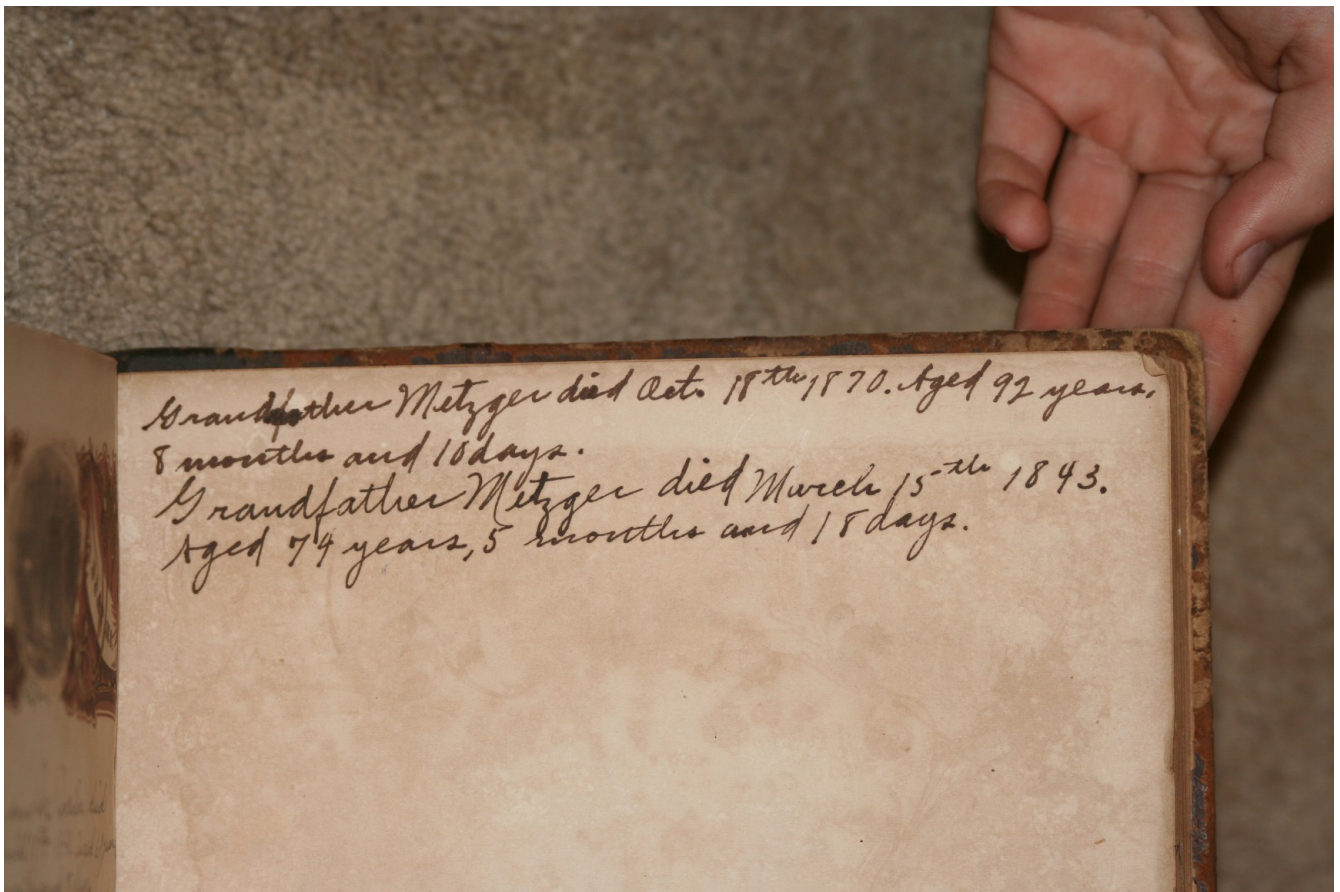 Grandfather Metzger died Oct. 18th 1870. Aged 92 years,
8 months and 10 days.
Grandfather Metzger died March 15th 1843.
Aged 74 years, 5 months and 18 days.